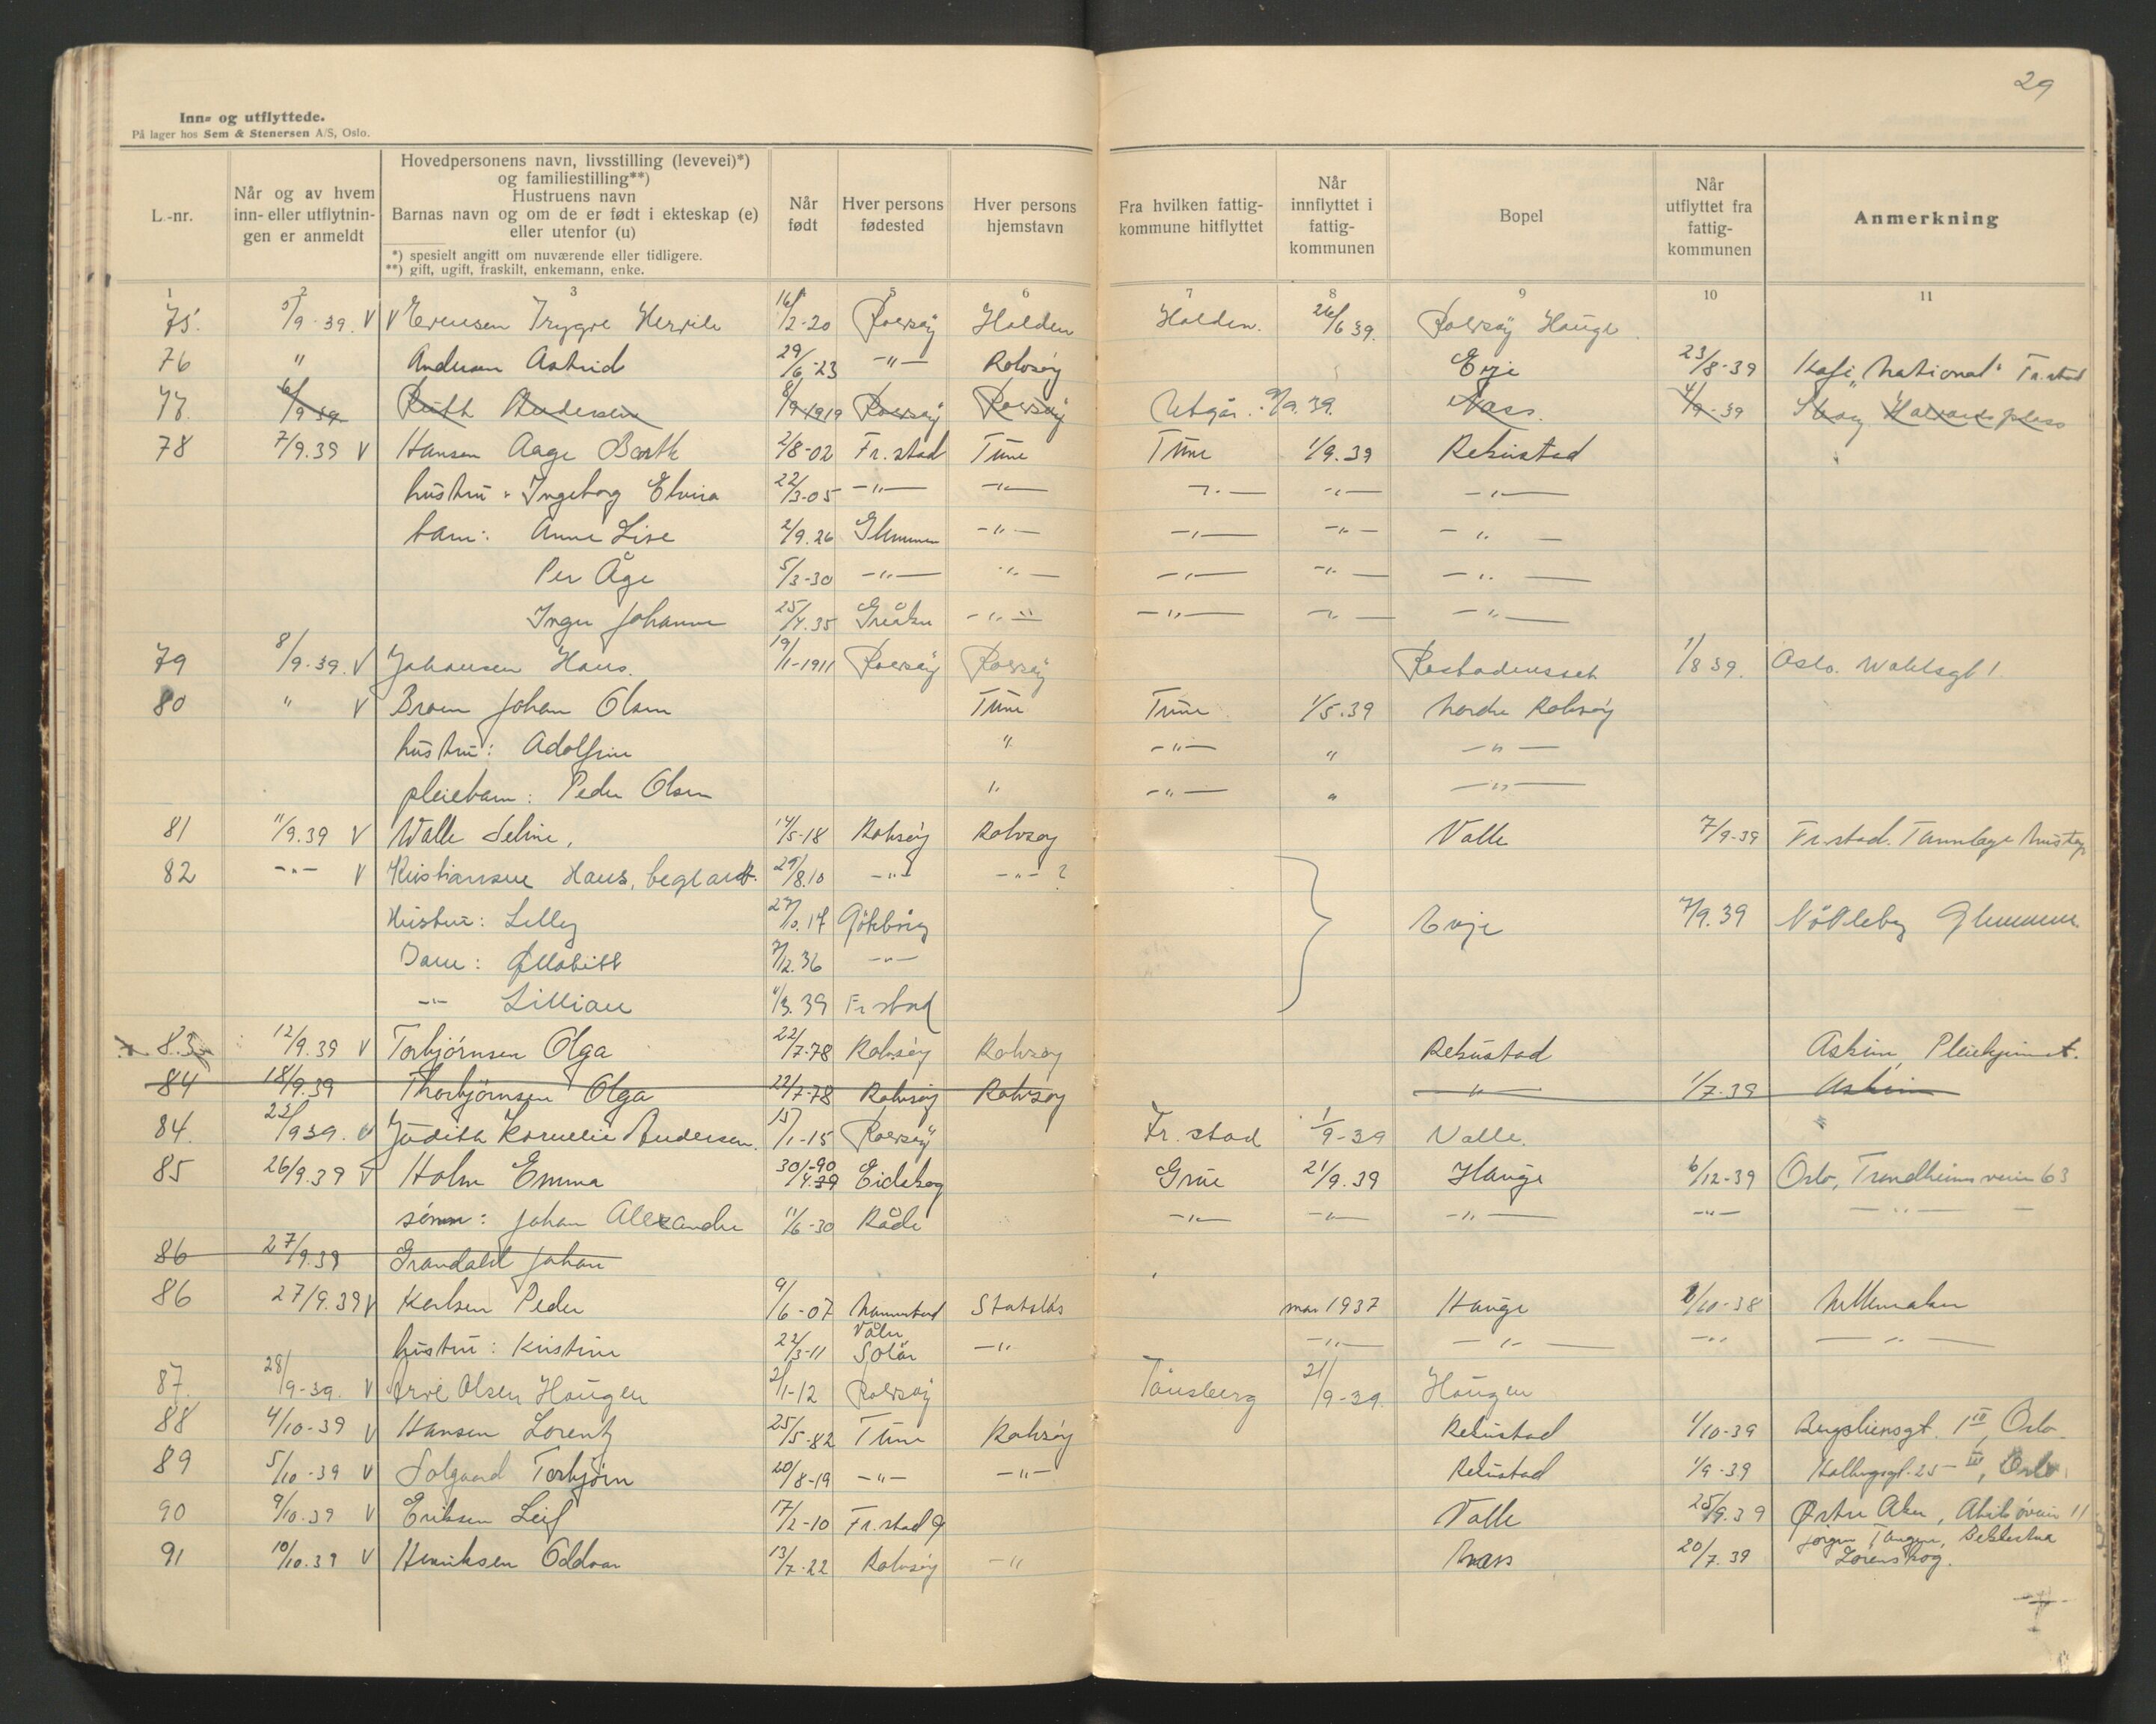 29
Inn- og utflyttede.
På lager hos Sem & Stenersen A/S, Oslo.
L.-nr.
Når og av hvem inn- eller utflytnin- gen er anmeldt
Hovedpersonens navn, livsstilling (levevei)*)
og familiestilling**)
Hustruens navn
Barnas navn og om de er født i ekteskap (e)
eller utenfor (u)
*) spesielt angitt om nuværende eller tidligere.
**) gift, ugift, fraskilt, enkemann, enke.
Når født
Hver persons fødested
Hver persons hjemstavn
Fra hvilken fattig- kommune hitflyttet
Når innflyttet i fattig- kommunen
Bopel
Når utflyttet fra fattig- kommunen
Anmerkning
1 2 3 5 6 7 8 9 10 11
75. 5/9-39. V V Evensen Trygve 16/2-20 Rolvsøy Halden Halden. 26/6 39. Rolvsøy Hauge
76 " Andersen Astrid 29/6-23 -"- Rolvsøy Evje 23/8-39 Kafe "National" Fr.stad
77. 6/9 39 Ruth Andersen 8/9 1919 Rolvsøy Rolvsøy Utgår. 9/9.39. Næss. 4/9-39
78 7/9.39 V Hansen Aage Barth 2/8-02 Fr.stad Tune Tune 1/9.39 Rekustad
hustru: Ingeborg Elvira 22/3-05 -"- -"- -"- -"- -"-
barn: Anne Lise 2/9.26 Glemmen -"- -"- -"- -"-
Per Åge 5/3-30 -"- -"- -"- -"- -"-
Inger Johanne 25/4.35 Greåker -"- -"- -"- -"-
79 8/9-39. V Johansen Hans. 19/1-1911 Rolvsøy Rolvsøy 1/8 39. Oslo. Wahlsgt 1
80 " V Braen Johan Olsen Tune Tune 1/5.39 Nordre Rolvsøy
hustru: Adolfine " -"- " -"-
pleiebarn: Peder Olsen " -"- " -"-
81 11/9.39 V Walle Seline, 14/5-18 Rolvsøy Rolvsøy Valle 7/9-39 Fr.stad. Tannlege
82 -"- V Kristiansen Hans, 29/8.10 -"- -"- ?
Hustru: Lilly Göteborg Evje 7/9.39 Glemmen.
Barn: 7/12.36 -"-
-"- Lillian 39 Fr stad
83 12/9.39 V Torbjørnsen Olga 22/7-78 Rolvsøy Rolvsøy Rekustad Askim, Pleiehjemmet.
84 18/9.39 Thorbjørnsen Olga 22/7-78 Rolvsøy Rolvsøy " 1/7.39 Askim
84. 22/9 39. V Judith Kornelie Andersen. 15/1-15 Rolvsøy Fr. stad 1/9-39 Valle.
85 26/9.39 V Holm Emma 30/1-90 Eidskog Grue 21/9.39 Hauge 6/12-39 Oslo, Trondheimsveien 63
sønn: Johan Alexander 11/6-30 Råde -"- -"- -"- -"- -"-
86 27/9.39 Johan
86 27/9.39 V Karlsen Peder 9/6-07 Statsløs mars 1937 Hauge 2/10-38
hustru: Kristine 22/3-11 Våler Solør -"- -"- -"- -"- -"-
87. 28/9-39. V Arve Olsen Haugen 2/1-12 Rolvsøy Tønsberg 21/9-39. Haugen
88 4/10-39 V Hansen Lorentz 25/5-82 Tune Rolvsøy Rekustad 1/10-39 Bergsliensgt. 1 IV, Oslo.
89 5/10-39 V Solgaard Torbjørn 20/8-19 -"- -"- Rekustad 1/9-39 25 III, Oslo.
90 9/10.39 V Eriksen Leif 17/2-10 Fr.stad Valle 25/9.39 Østre Aker, 11
91 10/10.39 V Henriksen Oddvar 13/7-22 Rolvsøy -"- Næss 20/7.39 Jørgen Tangen, Lørenskog.